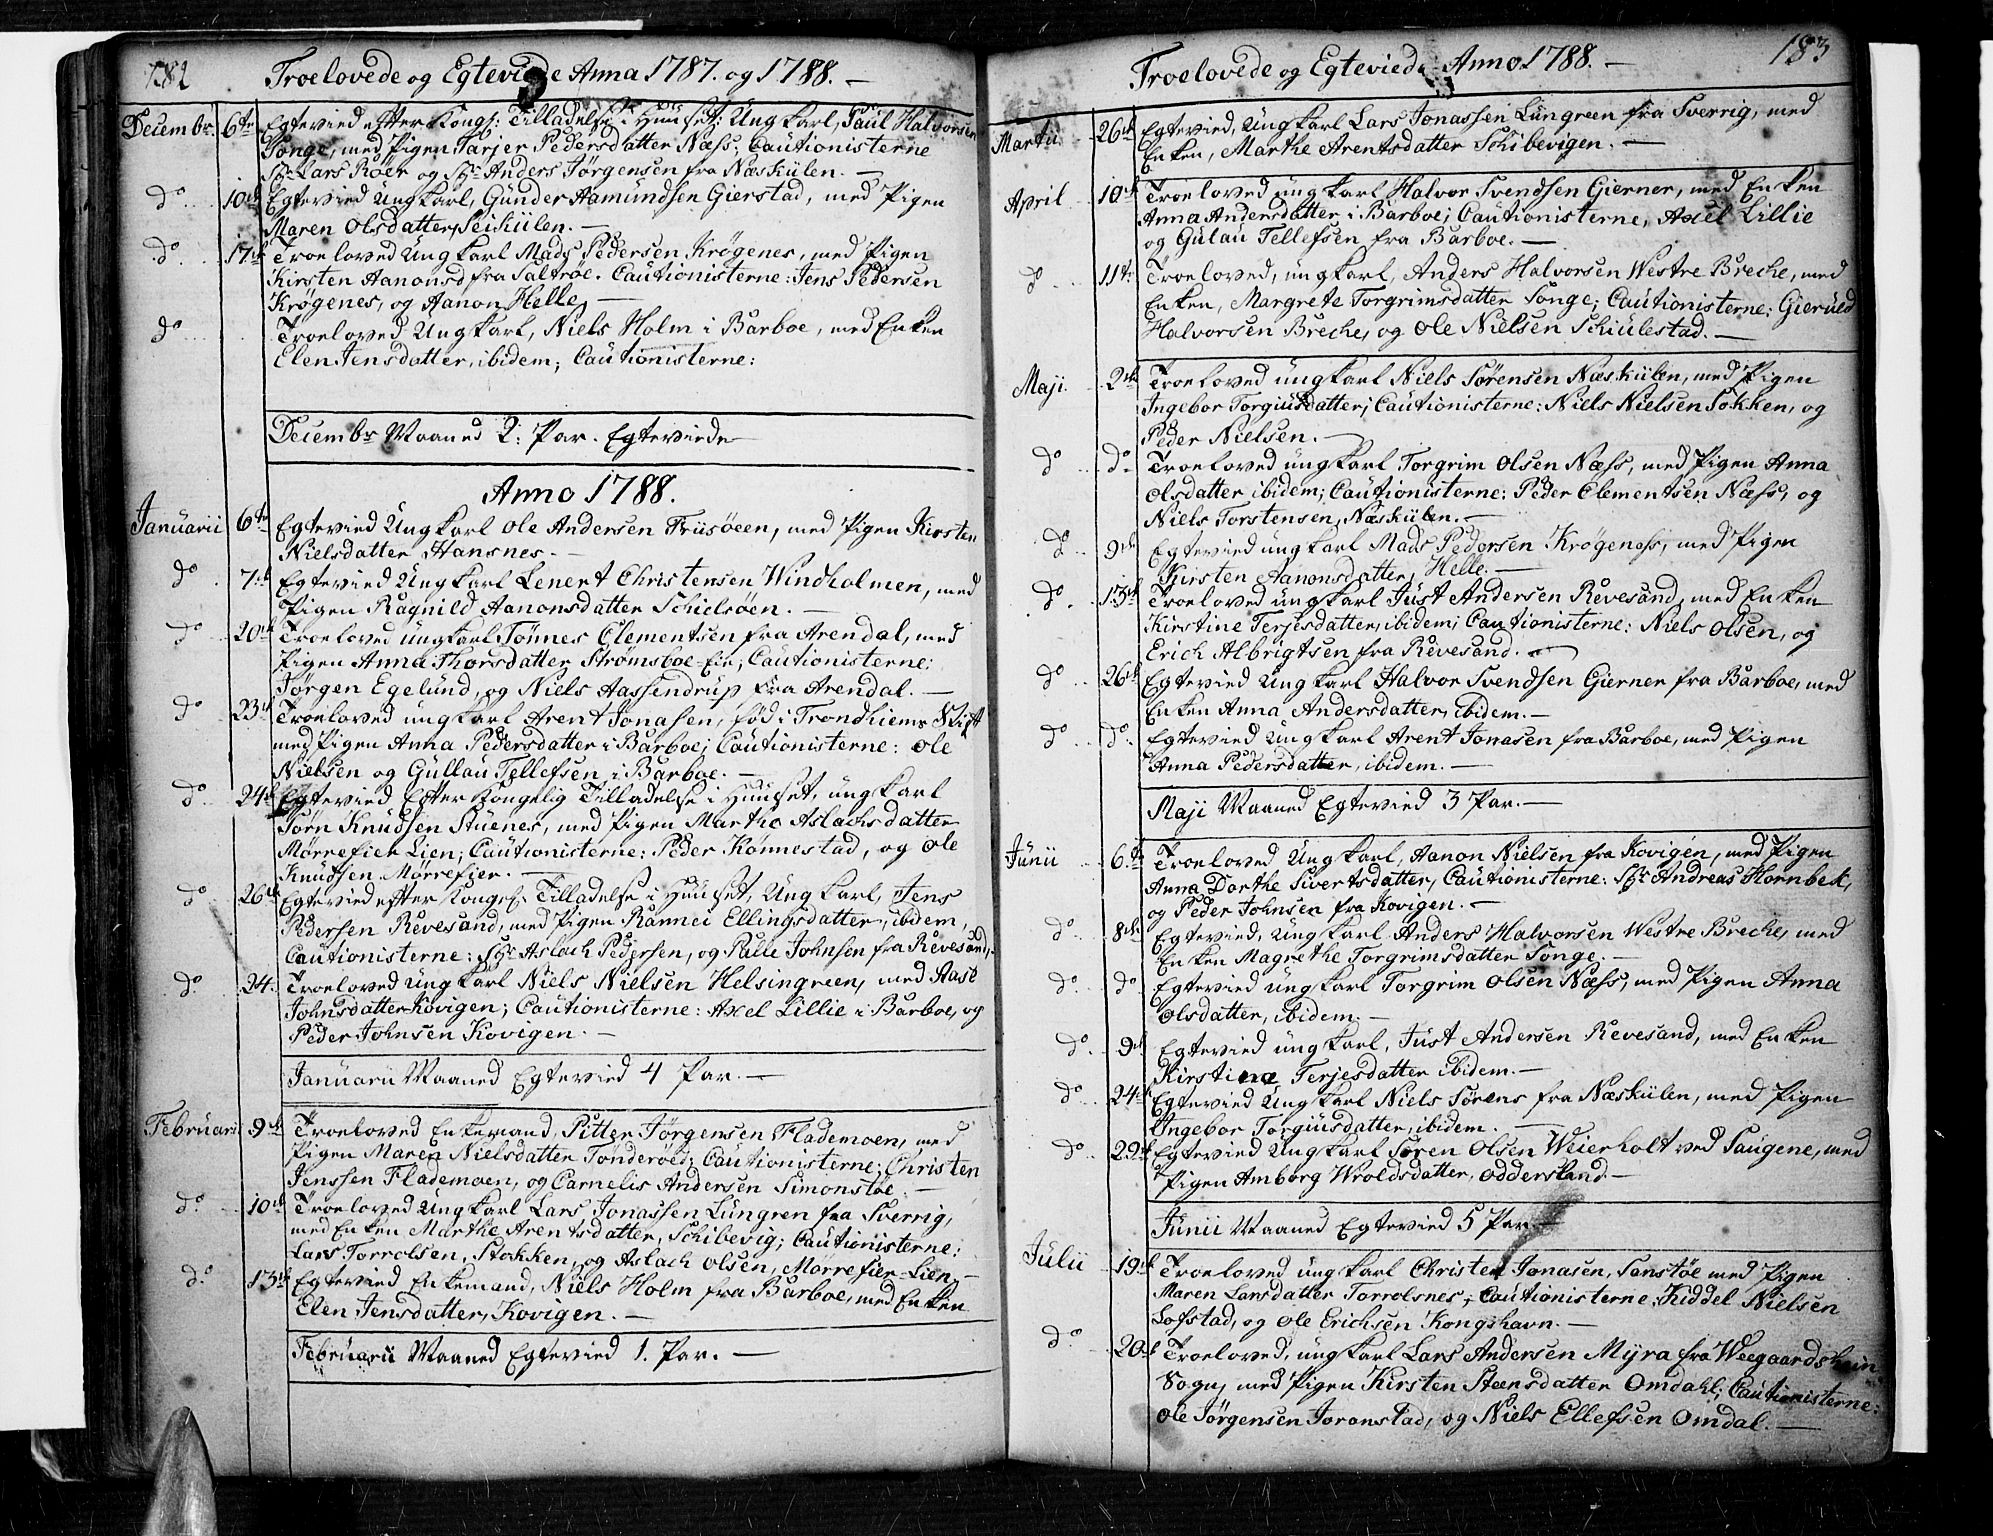 182
Troelovede og Egteviede Anna 1787. og 1788. —
Decembr. 6te Egtevied efter Kongl: Tilladelse i Huuset: Ungkarl, Paul Halvorsen
Songe, med Pigen Tarjer Pedersdatter Næss; Cautionisterne
Sr. Lars Röer og Sr. Anders Jørgensen fra Næskülen. —
do 10de Egtevied Ungkarl, Gunder Aamundsen Gierstad, med Pigen
Maren Olsdatter, Seikülen. —
do 17de Troeloved Ungkarl Mads Pedersen Krøgenes, med Pigen
Kirsten Aanonsd fra Saltrøe. Cautionisterne: Jens Pedersen
Krøgenes, og Aanon Helle. —
do Troeloved Ungkarl, Niels Holm i Barboe, med Enken
Elen Jensdatter, ibidem; Cautionisterne:
Decembr Maaned 2. Par. Egteviede
Anno 1788.
Januarii 6te Egtevied Ungkarl Ole Andersen Friisøeen, med Pigen Kirsten
Nielsdatter Hansnes. —
do 7de Egtevied Ungkarl Lenert Christensen Windholmen, med
Pigen Ragnild Aanonsdatter Schielsøen. —
do 20de Troeloved ungkarl Tönnes Clementsen fra Arendal, med
Pigen Anna Thorsdatter Strømsboe-Eie; Cautionisterne:
Jørgen Egelund, og Niels Aassendrup fra Arendal. —
do 23de Troeloved ungkarl Arent Jonasen, fød i Trondhiems Stift
med Pigen Anna Pedersdatter i Barboe; Cautionisterne: Ole
Nielsen og Gullau Tellefsen i Barboe. —
do 24de Egtevied Efter Kongelig Tilladelse i Huuset, ungkarl
Törn Knudsen Stuenes, med Pigen Marthe Aslachsdatter
Mørrefier Lien; Cautionisterne: Peder Könnestad, og Ole
Knudsen Mørrefier. —
do 26de Egtevied efter Kongel: Tilladelse i Huuset, Ungkarl, Jens
Pedersen Revesand, med Pigen Rannei Ellingsdatter, ibidem,
Cautionisterne: Sr. Aslach Pedersen, og Palle Johnsen fra Revesand. —
do 24. Troeloved Ungkarl Niels Nielsen Helsingreen, med Aase
Johnsdatter Kovigen; Cautionisterne: Axel Lillie i Barboe, og
Peder Johnsen Kovigen. —
Januarii Maaned Egtevied 4 Par. —
Februarii 9de Troeloved Enkemand, Pitter Jørgensen Flademoen, med
Pigen Maren Nielsdatter Tonderøed; Cautionisterne: Christen
Jenssen Flademoen, og Carnelis Andersen Simonstøe. —
do 10de Troeloved Ungkarl Lars Jonassen Lungren fra Sverrig,
med Enken Marthe Arentsdatter, Schibevig; Cautionisterne:
Lars Torrolsen, Stokken, og Aslach Olsen, Morrefier-Lien. —
do 13de Egtevied Enkemand, Niels Holm fra Barboe, med Enken
Elen Jensdatter, Kovigen. —
Februarii Maaned Egtevied 1. Par. —
183
Troelovede og Egteviede Anno 1788. —
Martii 26de Egtevied, Ungkarl Lars Jonassen Lungreen fra Sverrig, med
Enken, Marthe Arentsdatter Schibevigen. —
April 10de Troeloved ungkarl Halvor Svendsen Gierner, med Enken
Anna Andersdatter i Barboe; Cautionisterne, Axel Lillie
og Gulau Tellefsen fra Barboe. —
do 11te Troeloved, ungkarl, Anders Halvorsen Westre Breche, med
Enken, Margrete Torgrimsdatter Songe; Cautionisterne: Gieruld
Halvorsen Breche, og Ole Nielsen Schiulestad. —
Maji 2de Troeloved ungkarl Niels Sörensen Næskülen, med Pigen
Ingebor Torgiusdatter; Cautionisterne: Niels Nielsen Sokken, og
Peder Nielsen. —
do do Troeloved ungkarl Torgrim Olsen Næss, med Pigen Anna
Olsdatter ibidem; Cautionisterne: Peder Clementsen Næss, og
Niels Torstensen, Næskülen. —
do 9de Egtevied ungkarl Mads Pedersen Krøgeness, med Pigen
Kirsten Aanonsdatter, Helle. —
do 13de Troeloved ungkarl Just Andersen Revesand, med Enken
Kirstine Terjesdatter, ibidem; Cautionisterne: Niels Olsen, og
Erich Albrigtsen fra Revesand. —
do 26de Egtevied Ungkarl Halvor Svendsen Gierner fra Barboe, med
Enken Anna Andersdatter, ibidem. —
do do Egtevied Ungkarl Arent Jonasen fra Barboe, med Pigen
Anna Pedersdatter, ibidem. —
Maji Maaned Egtevied 3 Par. —
Junii 6te Troeloved Ungkarl, Aanon Nielsen fra Kovigen, med Pigen
Anna Dorthe Sivertsdatter, Cautionisterne: Sr. Andreas Hornbek,
og Peder Johnsen fra Kovigen. —
do 8de Egtevied, Ungkarl Anders Halvorsen Westre Breche, med
Enken Magrethe Torgrimsdatter Songe. —
do do Egtevied ungkarl Torgrim Olsen Næss, med Pigen Anna
Olsdatter, ibidem. —
do 9de Egtevied ungkarl, Just Andersen Revesand, med Enken
Kirstine Terjesdatter ibidem. —
do 24de Egtevied Ungkarl Niels Sörens fra Næskülen, med Pigen
Ingebor Torgiusdatter, ibidem. —
do 29de Egtevied Ungkarl Sören Olsen Weierholt ved Saugene, med
Pigen Amborg Wroldsdatter, Oddersland —
Junii Maaned Egtevied 5 Par —
Julii 19de Troeloved ungkarl Christen Jonasen, Sanstøe med Pigen
Maren Larsdatter Torrolsnes; Cautionisterne, Kiddel Nielsen
Lofstad, og Ole Erichsen Kongshavn. —
do 20de Troeloved, ungkarl Lars Andersen Myra fra Weegaardshein
Sogn, med Pigen Kirsten Steensdatter Omdahl; Cautionisterne:
Ole Jørgensen Joronstad, og Niels Ellefsen Omdal. —